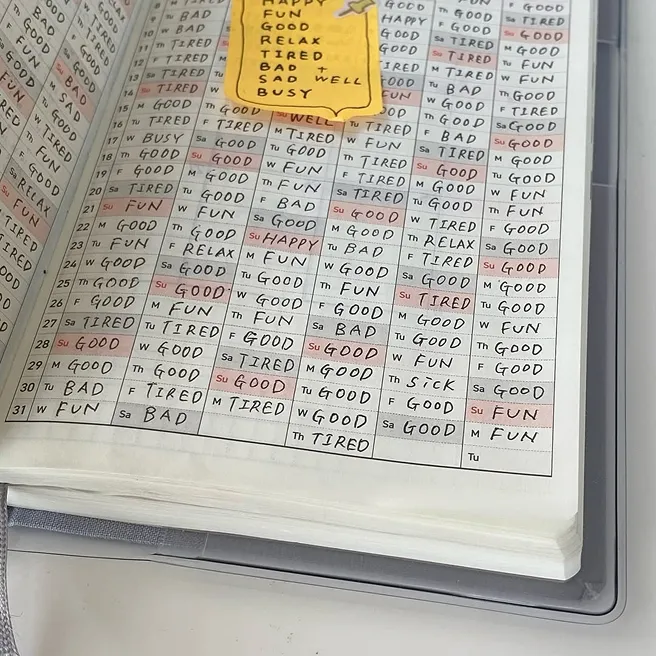 HAPPY
FUN
GOOD
RELAX
TIRED
BAD
SAD + WELL
BUSY
BAD
SAD
GOOD
TIRED
FUN
GOOD
RELAX
FUN
TIRED
TIRED
GOOD
9 Tu BAD
10 W BAD
11 Th TIRED
12 F TIRED
13 Sa TIRED
14 Su TIRED
15 M GOOD
16 Tu TIRED
17 W BUSY
18 Th GOOD
19 F GOOD
20 Sa TIRED
21 Su FUN
22 M GOOD
23 Tu FUN
24 W GOOD
25 Th GOOD
26 F GOOD
27 Sa TIRED
28 Su GOOD
29 M GOOD
30 Tu BAD
31 W FUN
Th GOOD
F TIRED
Sa GOOD
Su GOOD
M GOOD
Tu GOOD
W FUN
Th GOOD
F RELAX
Sa GOOD
Su GOOD
M FUN
Tu TIRED
W GOOD
Th GOOD
F TIRED
Sa BAD
Su WELL
M TIRED
Tu GOOD
W FUN
Th FUN
F BAD
Sa GOOD
Su HAPPY
M FUN
Tu GOOD
W GOOD
Th FUN
F GOOD
Sa TIRED
Su GOOD
M TIRED
HAPPY
GOOD
GOOD
GOOD
FUN
Tu TIRED
W FUN
Th TIRED
F TIRED
Sa TIRED
Su GOOD
M GOOD
Tu BAD
W GOOD
Th FUN
F GOOD
Sa BAD
Su GOOD
M GOOD
Tu GOOD
W GOOD
Th TIRED
FUN
Th GOOD
F GOOD
Sa TIRED
Su TIRED
M TIRED
Tu BAD
W GOOD
Th GOOD
F BAD
Sa TIRED
Su GOOD
M GOOD
Tu GOOD
W TIRED
Th RELAX
F TIRED
Sa GOOD
Su TIRED
M GOOD
Tu GOOD
W FUN
Th SiCK
F GOOD
Sa GOOD
F GOOD
Sa TIRED
Su GOOD
M GOOD
Tu FUN
W FUN
Th GOOD
F TIRED
Sa GOOD
Su GOOD
M GOOD
Tu GOOD
W FUN
Th FUN
F GOOD
Sa GOOD
Su GOOD
M GOOD
Tu GOOD
W FUN
Th GOOD
F GOOD
Sa GOOD
Su FUN
M FUN
Tu